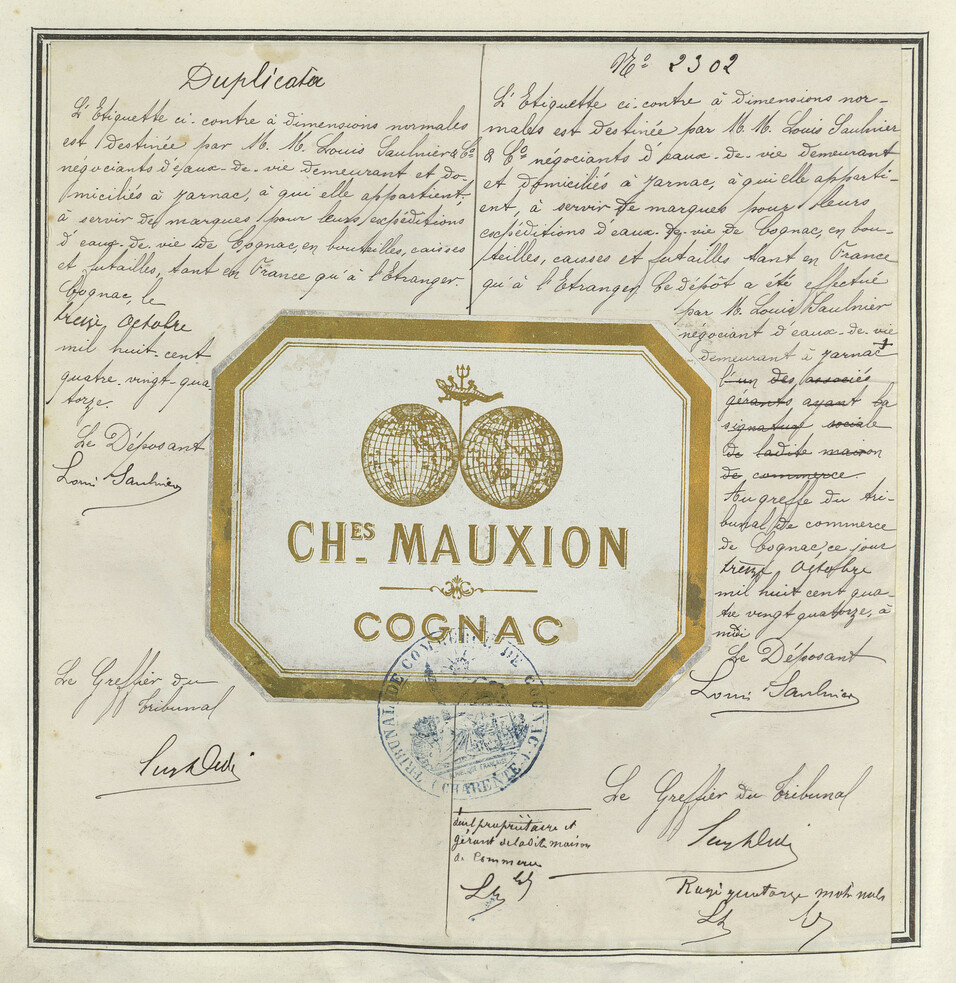 Duplicata
L'Etiquette ci-contre à dimensions normales
est destinée par M. M. Louis Saulnier & Cº
négociants d'eaux-de-vie demeurant et do-
miciliés à Jarnac, à qui elle appartient
à servir de marques pour leurs expéditions
d'eaux-de-vie de Cognac, en bouteilles, caisses
et futailles, tant en France qu'à l'Etranger.
Cognac, le
treize Octobre
mil huit cent
quatre-vingt-qua
torze.
Le Déposant
Louis Saulnier
Le Greffier du
Tribunal
Nº 2302
L'Etiquette ci-contre à dimensions nor-
males est destinée par M. M. Louis Saulnier
& Cº négociants d'eaux-de-vie demeurant
et domiciliés à Jarnac, à qui elle apparti-
ent, à servir de marques pour leurs
expéditions d'eaux-de-vie de Cognac, en bou-
teilles, caisses et futailles tant en France
qu'à l'Etranger. Ce dépôt a été effectué
par M. Louis Saulnier
négociant d'eaux-de-vie
demeurant à Jarnac
l'un des associés
gérants ayant la
signature sociale
de ladite maison
de commerce.
Au greffe du tri-
bunal de commerce
de Cognac, ce jour
treize Octobre
mil huit cent qua-
tre vingt quatorze, à
midi
Le Déposant
Louis Saulnier
Le Greffier du Tribunal
CHES MAUXION
COGNAC
TRIBUNAL DE COMMERCE DE COGNAC
CHARENTE
seul propriétaire et
gérant de ladite maison
de Commerce
LS
Rayé quatorze mots nuls
LS